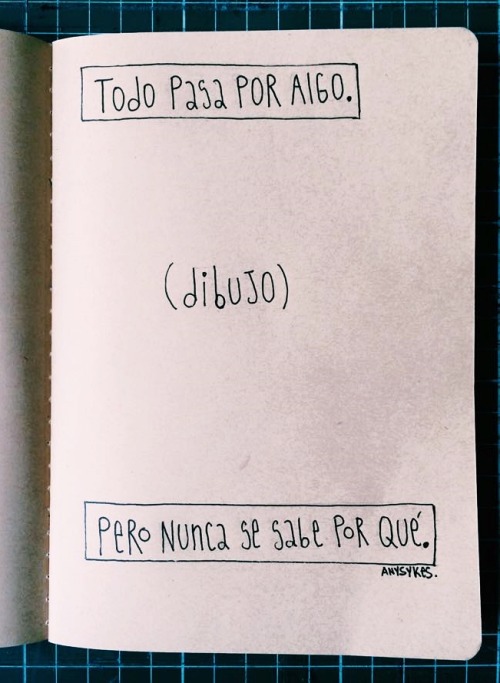 Todo Pasa POR AlGO.
(dibUJO)
PeRo NUNca se sabe PoR QUé.
ANYSYKES.